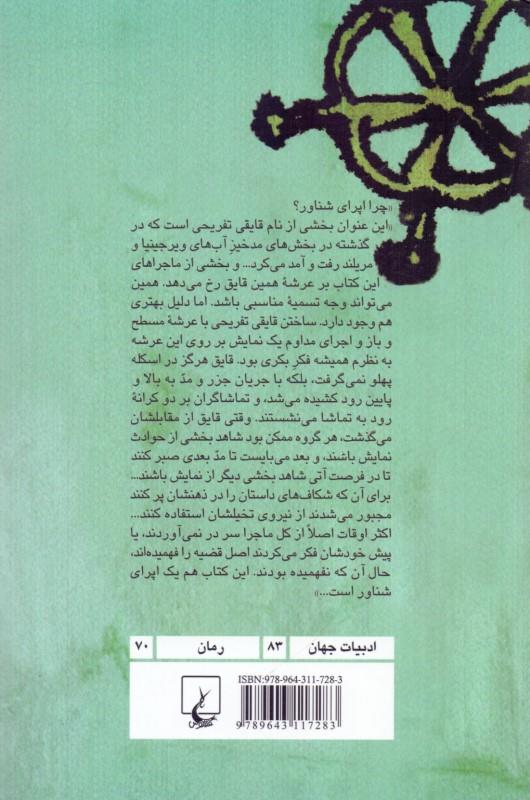 «چرا اپرای شناور؟
«این عنوان بخشی از نام قایقی تفریحی است که در
گذشته در بخش‌های مدخیز آب‌های ویرجینیا و
مریلند رفت و آمد می‌کرد... و بخشی از ماجراهای
این کتاب بر عرشهٔ همین قایق رخ می‌دهد. همین
می‌تواند وجه تسمیهٔ مناسبی باشد. اما دلیل بهتری
هم وجود دارد. ساختن قایقی تفریحی با عرشهٔ مسطح
و باز و اجرای مداوم یک نمایش بر روی این عرشه
به نظرم همیشه فکرِ بکری بود. قایق هرگز در اسکله
پهلو نمی‌گرفت، بلکه با جریان جزر و مدّ به بالا و
پایین رود کشیده می‌شد، و تماشاگران بر دو کرانهٔ
رود به تماشا می‌نشستند. وقتی قایق از مقابلشان
می‌گذشت، هر گروه ممکن بود شاهد بخشی از حوادث
نمایش باشند، و بعد می‌بایست تا مدّ بعدی صبر کنند
تا در فرصت آتی شاهد بخشی دیگر از نمایش باشند...
برای آن که شکاف‌های داستان را در ذهنشان پر کنند
مجبور می‌شدند از نیروی تخیلشان استفاده کنند...
اکثر اوقات اصلاً از کل ماجرا سر در نمی‌آوردند، یا
پیش خودشان فکر می‌کردند اصل قضیه را فهمیده‌اند،
حال آن که نفهمیده بودند. این کتاب هم یک اپرای
شناور است...»
ادبیات جهان ۸۳ رمان ۷۰
ISBN: 978-964-311-728-3
9789643117283